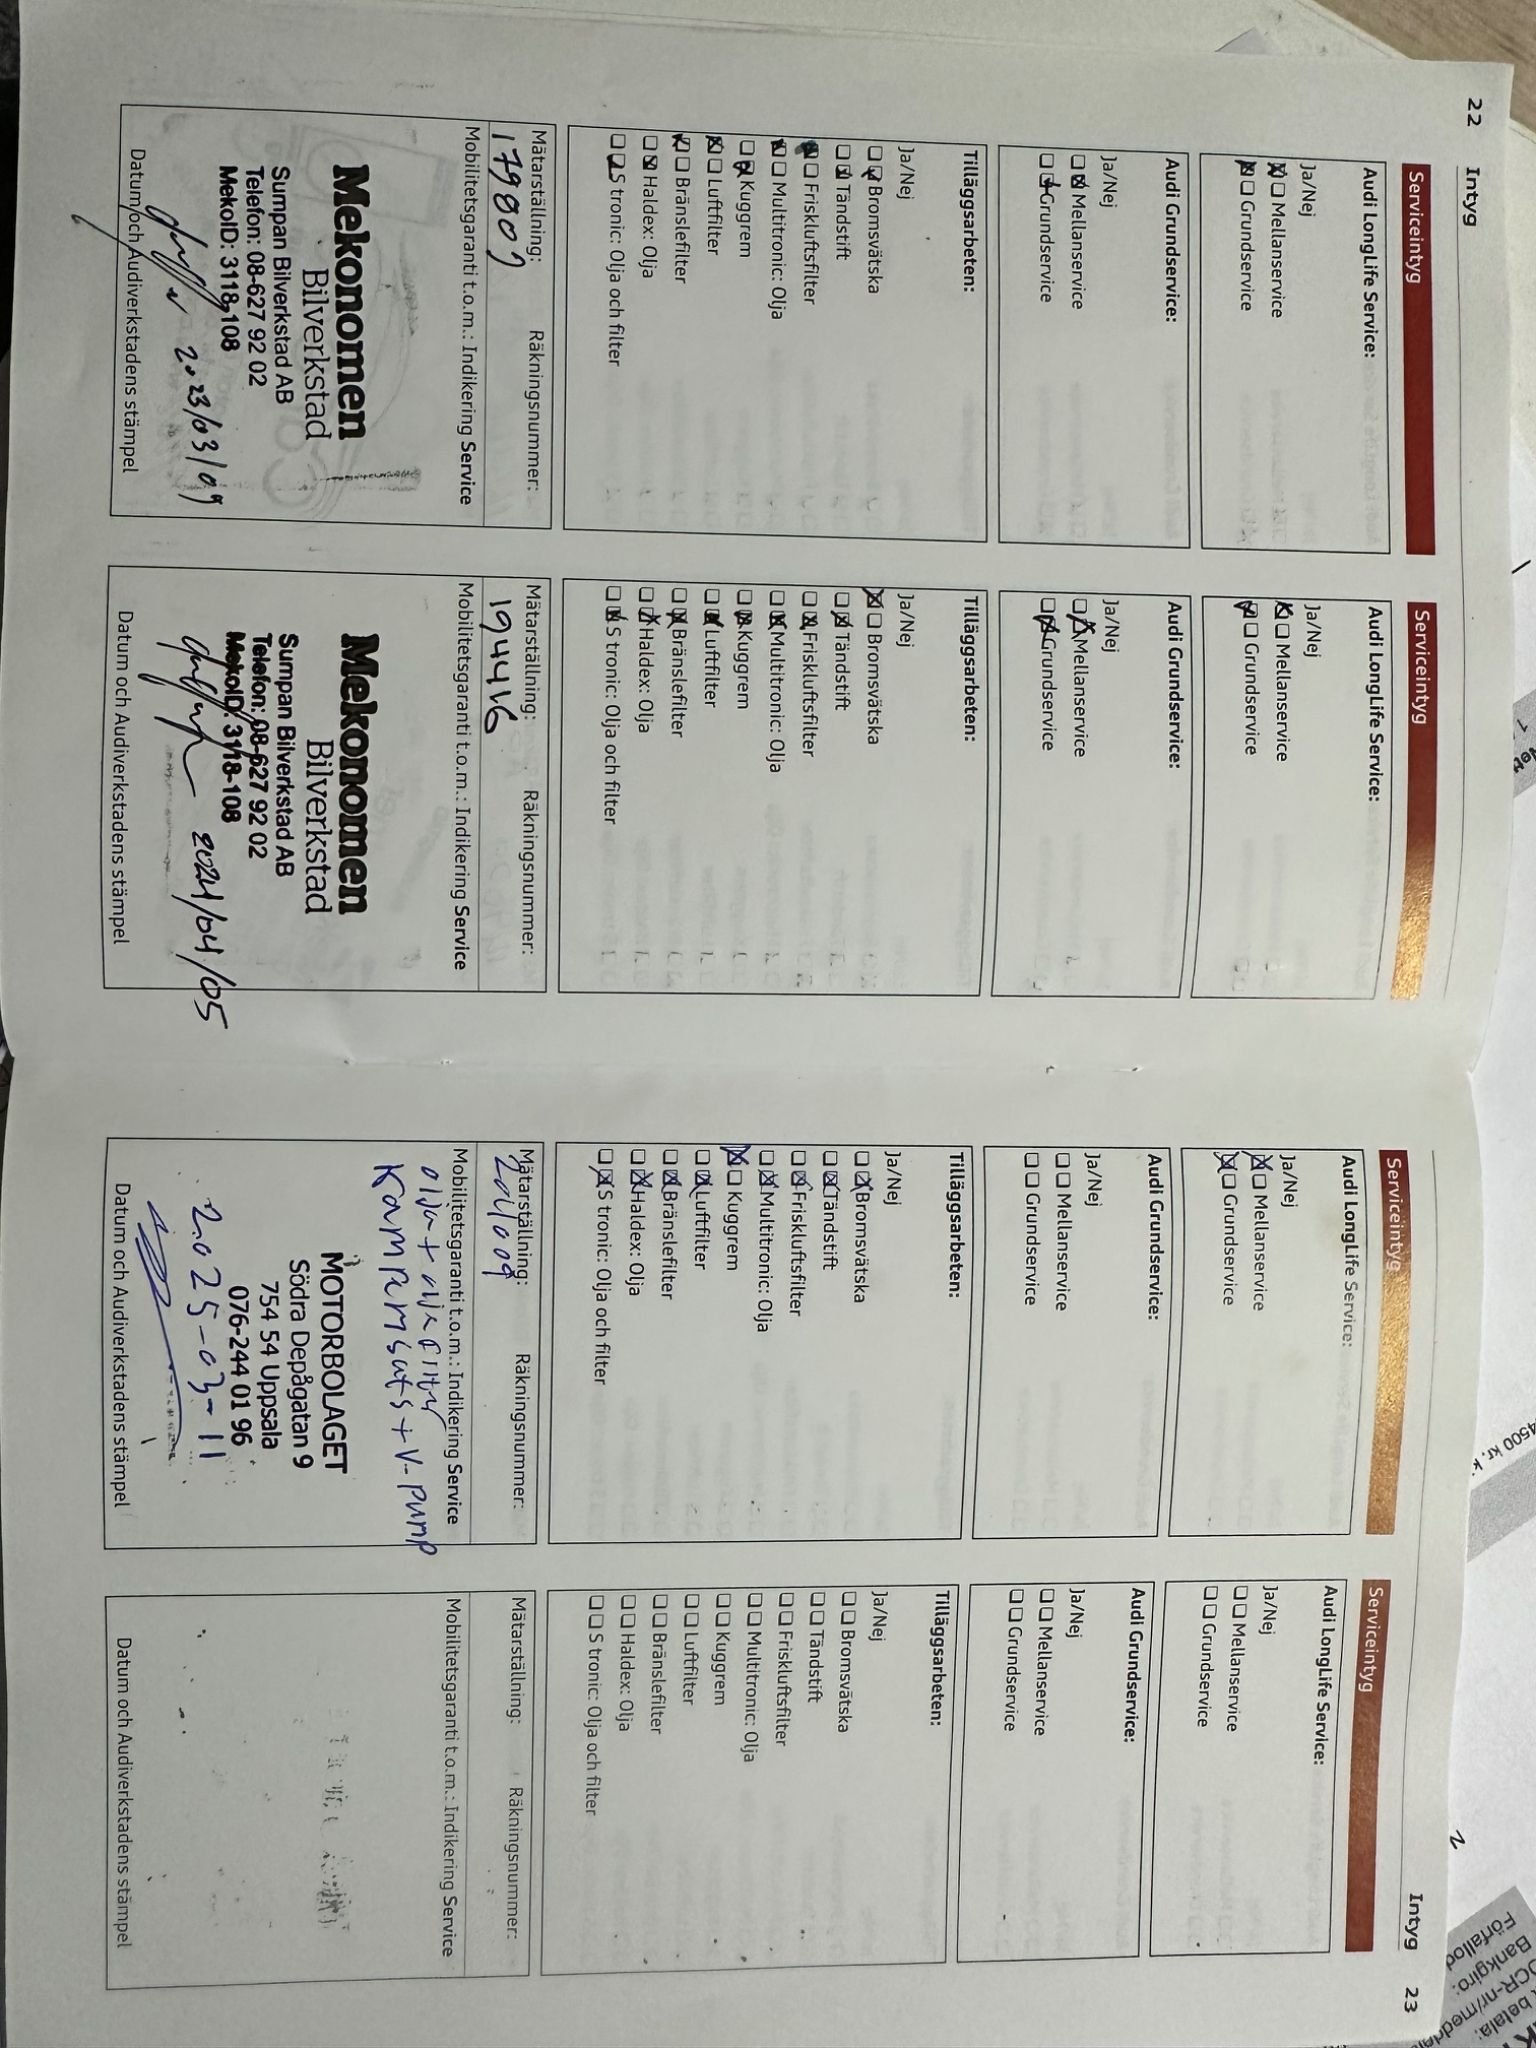 22 Intyg
Serviceintyg
Audi LongLife Service:
Ja/Nej
Mellanservice
Grundservice
Audi Grundservice:
Ja/Nej
Mellanservice
Grundservice
Tilläggsarbeten:
Ja/Nej
Bromsvätska
Tändstift
Friskluftsfilter
Multitronic: Olja
Kuggrem
Luftfilter
Bränslefilter
Haldex: Olja
S tronic: Olja och filter
Mätarställning: Räkningsnummer:
179809
Mobilitetsgaranti t.o.m.: Indikering Service
Mekonomen
Bilverkstad
Sumpan Bilverkstad AB
Telefon: 08-627 92 02
MekoID: 3118-108
2023/03/09
Datum och Audiverkstadens stämpel
Serviceintyg
Audi LongLife Service:
Ja/Nej
Mellanservice
Grundservice
Audi Grundservice:
Ja/Nej
Mellanservice
Grundservice
Tilläggsarbeten:
Ja/Nej
Bromsvätska
Tändstift
Friskluftsfilter
Multitronic: Olja
Kuggrem
Luftfilter
Bränslefilter
Haldex: Olja
S tronic: Olja och filter
Mätarställning: Räkningsnummer:
194416
Mobilitetsgaranti t.o.m.: Indikering Service
Mekonomen
Bilverkstad
Sumpan Bilverkstad AB
Telefon: 08-627 92 02
MekoID: 3118-108
2024/04/05
Datum och Audiverkstadens stämpel
Serviceintyg
Audi LongLife Service:
Ja/Nej
Mellanservice
Grundservice
Audi Grundservice:
Ja/Nej
Mellanservice
Grundservice
Tilläggsarbeten:
Ja/Nej
Bromsvätska
Tändstift
Friskluftsfilter
Multitronic: Olja
Kuggrem
Luftfilter
Bränslefilter
Haldex: Olja
S tronic: Olja och filter
Mätarställning: Räkningsnummer:
Mobilitetsgaranti t.o.m.: Indikering Service
olja + oljefilter
Kamremsats + V-pump
MOTORBOLAGET
Södra Depågatan 9
754 54 Uppsala
076-244 01 96
2025-03-11
Datum och Audiverkstadens stämpel
Intyg 23
Serviceintyg
Audi LongLife Service:
Ja/Nej
Mellanservice
Grundservice
Audi Grundservice:
Ja/Nej
Mellanservice
Grundservice
Tilläggsarbeten:
Ja/Nej
Bromsvätska
Tändstift
Friskluftsfilter
Multitronic: Olja
Kuggrem
Luftfilter
Bränslefilter
Haldex: Olja
S tronic: Olja och filter
Mätarställning: Räkningsnummer:
Mobilitetsgaranti t.o.m.: Indikering Service
Datum och Audiverkstadens stämpel
4500 kr.
betala:
Bankgiro: